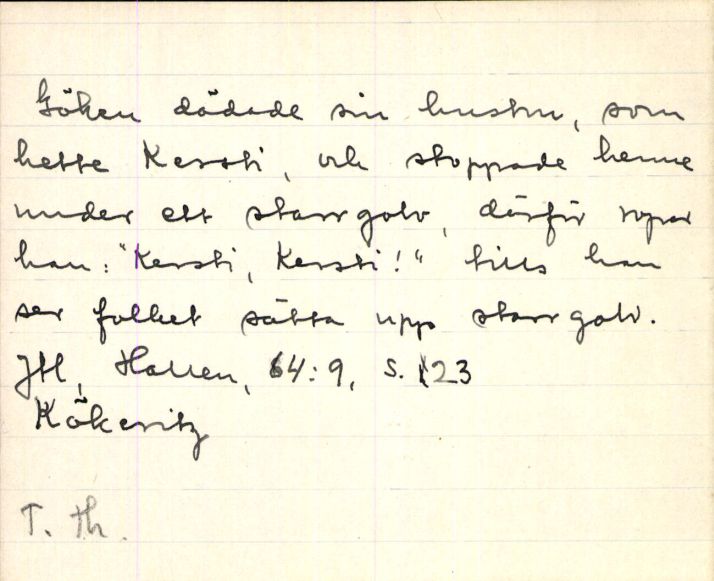 Göken dödade sin hustru, som
hette Kersti, och stoppade henne
under ett starrgolv, därför ropar
han: "Kersti, Kersti!" tills han
ser folket sätta upp starrgolv.
JH, Hallen, 64:9, s. 123
Kökeritz
T. Th.